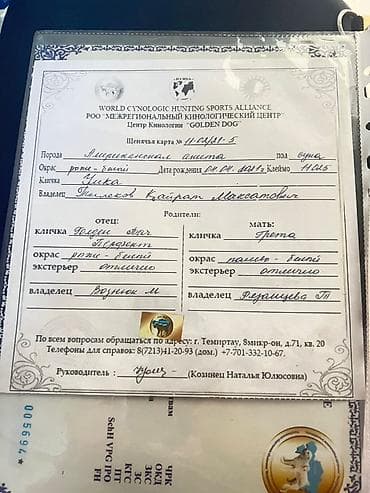 WORLD CYNOLOGIC HUNTING SPORTS ALLIANCE
РОО "МЕЖРЕГИОНАЛЬНЫЙ КИНОЛОГИЧЕСКИЙ ЦЕНТР"
Центр Кинологии "GOLDEN DOG"
Щенячья карта № 11-03/21-5
Порода Американская акита пол сука
Окрас рыже-белый Дата рождения Клеймо 11025
Кличка Чика
Владелец Кайрат Максатович
Родители:
отец: мать:
кличка Голден Вич кличка Грета
Перфект
окрас рыже-белый окрас палев-белый
экстерьер отлично экстерьер отлично
владелец Вознюк М владелец
По всем вопросам обращаться по адресу: г. Темиртау, 8микр-он, д.71, кв. 20
Телефоны для справок: 8(7213)41-20-93 (дом.) +7-701-332-10-67.
Руководитель : (Козинец Наталья Юлюсовна)
005694 *
SchH VPG IPO FH
ЧРК
ОКД
ЗКС
КГС
ЗС
ПТ